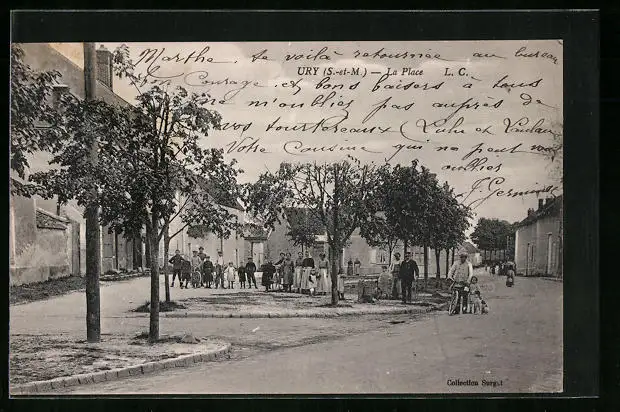 Marthe. te voilà retournée au bureau
URY (S.-et-M.) — La Place L. C.
Courage et bons baisers à tous
ne m'oublies pas auprès de
vos tourtereaux (Lulu et
Votre Cousine qui ne peut vous
oublier
Collection Surget